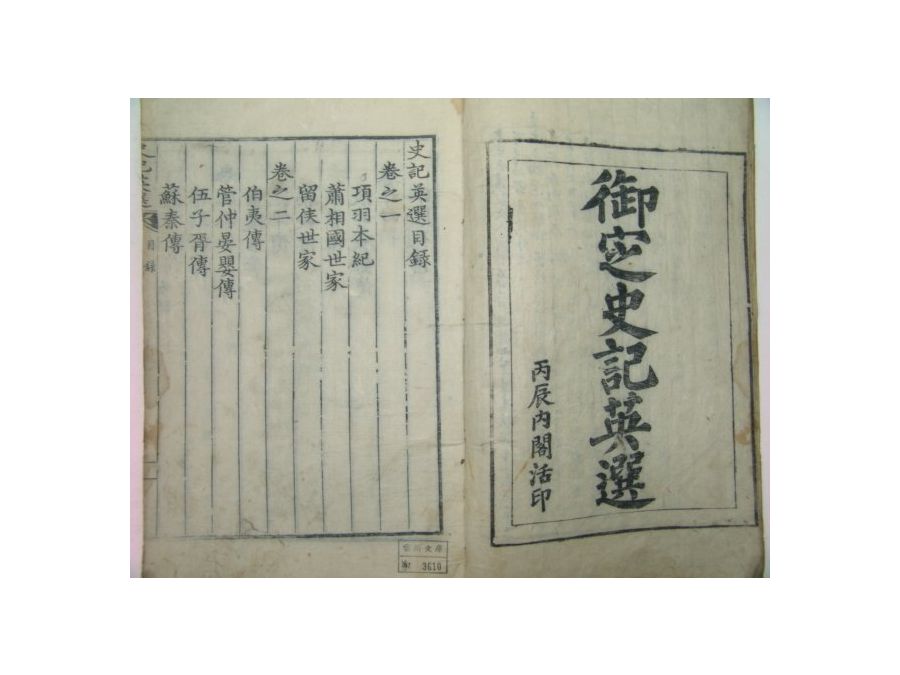 御定史記英選
丙辰內閣活印
史記英選目錄
卷之一
項羽本紀
蕭相國世家
留侯世家
卷之二
伯夷傳
管仲晏嬰傳
伍子胥傳
蘇秦傳
史記英選
目錄
文庫
3610